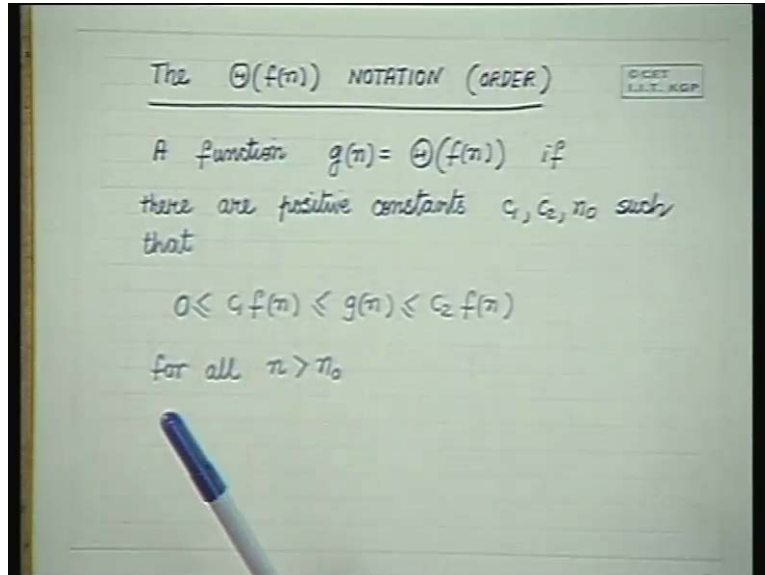 The Θ(f(n)) NOTATION (ORDER)
© CET
I.I.T. KGP
A function g(n) = Θ(f(n)) if
there are positive constants c₁, c₂, n₀ such
that
0 ≤ c₁f(n) ≤ g(n) ≤ c₂ f(n)
for all n > n₀